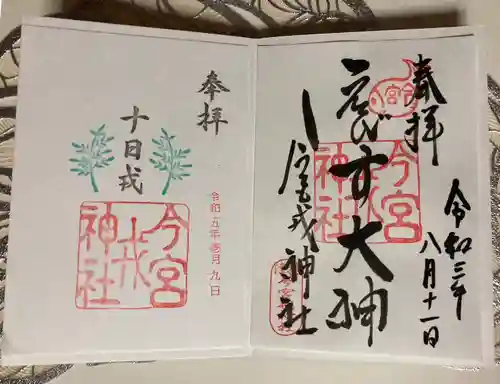 奉拝
令和三年
八月十一日
えびす大神
今宮戎神社
今宮戎神社
奉拝
十日戎
令和五年壱月九日
今宮戎神社